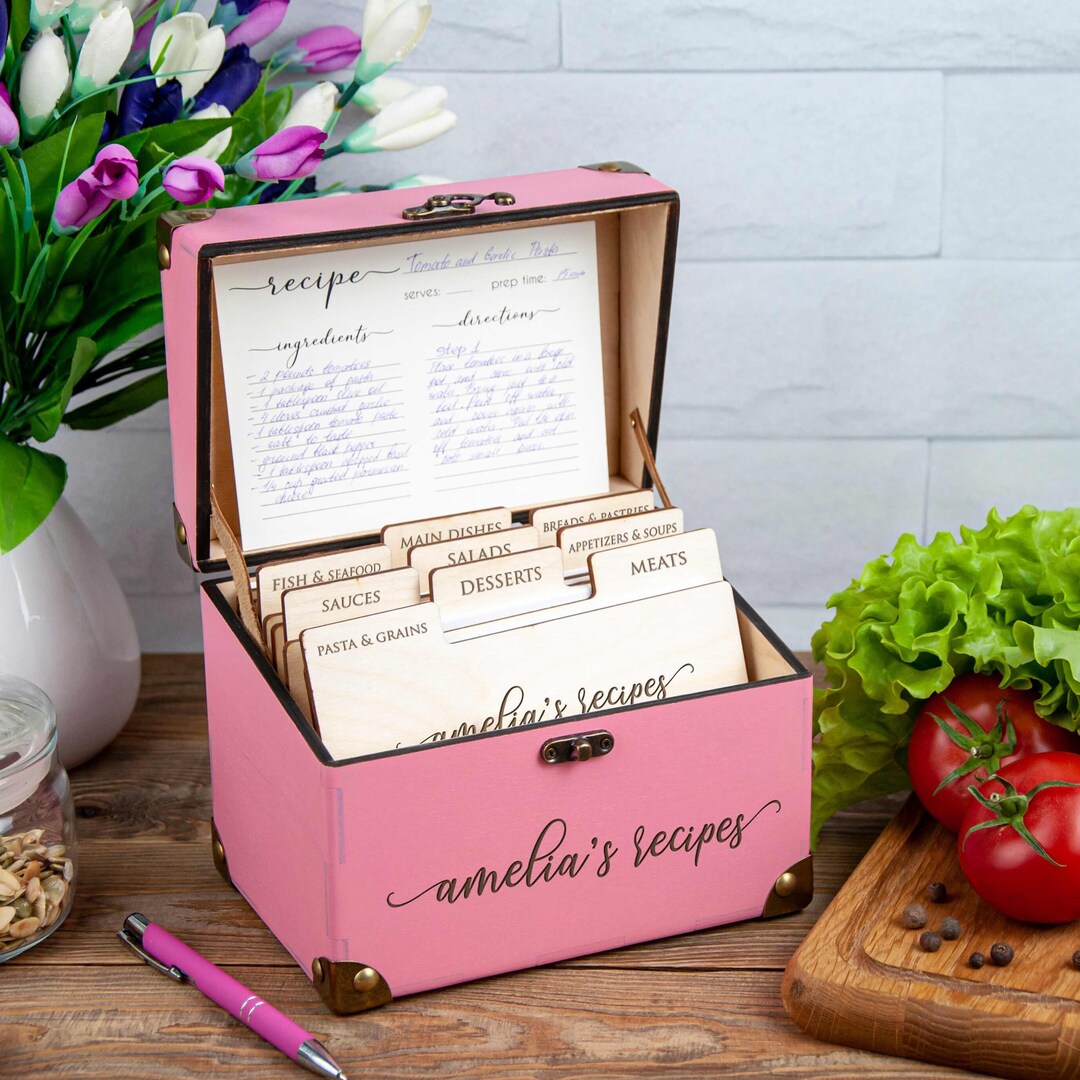 recipe Tomato and Garlic Pasta
serves: prep time: 15
ingredients
- 2 pounds tomatoes
- 1 package of pasta
- 1 tablespoon olive oil
- 4 cloves crushed garlic
- 1 tablespoon tomato paste
salt to taste
- ground black pepper
- 1 tablespoon chopped basil
- 1/4 cup grated parmesan
cheese
directions
Step 1
Place tomatoes in a large
pot and cover with cold
water. Bring just to a
boil. Pour off water,
and cover again with
cold water. Peel the skin
off tomatoes and cut
into small pieces.
MAIN DISHES
BREADS & PASTRIES
FISH & SEAFOOD
SALADS
APPETIZERS & SOUPS
SAUCES
DESSERTS
MEATS
PASTA & GRAINS
amelia's recipes
amelia's recipes